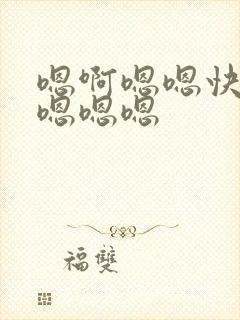 嗯啊嗯嗯快
嗯嗯嗯
福雙